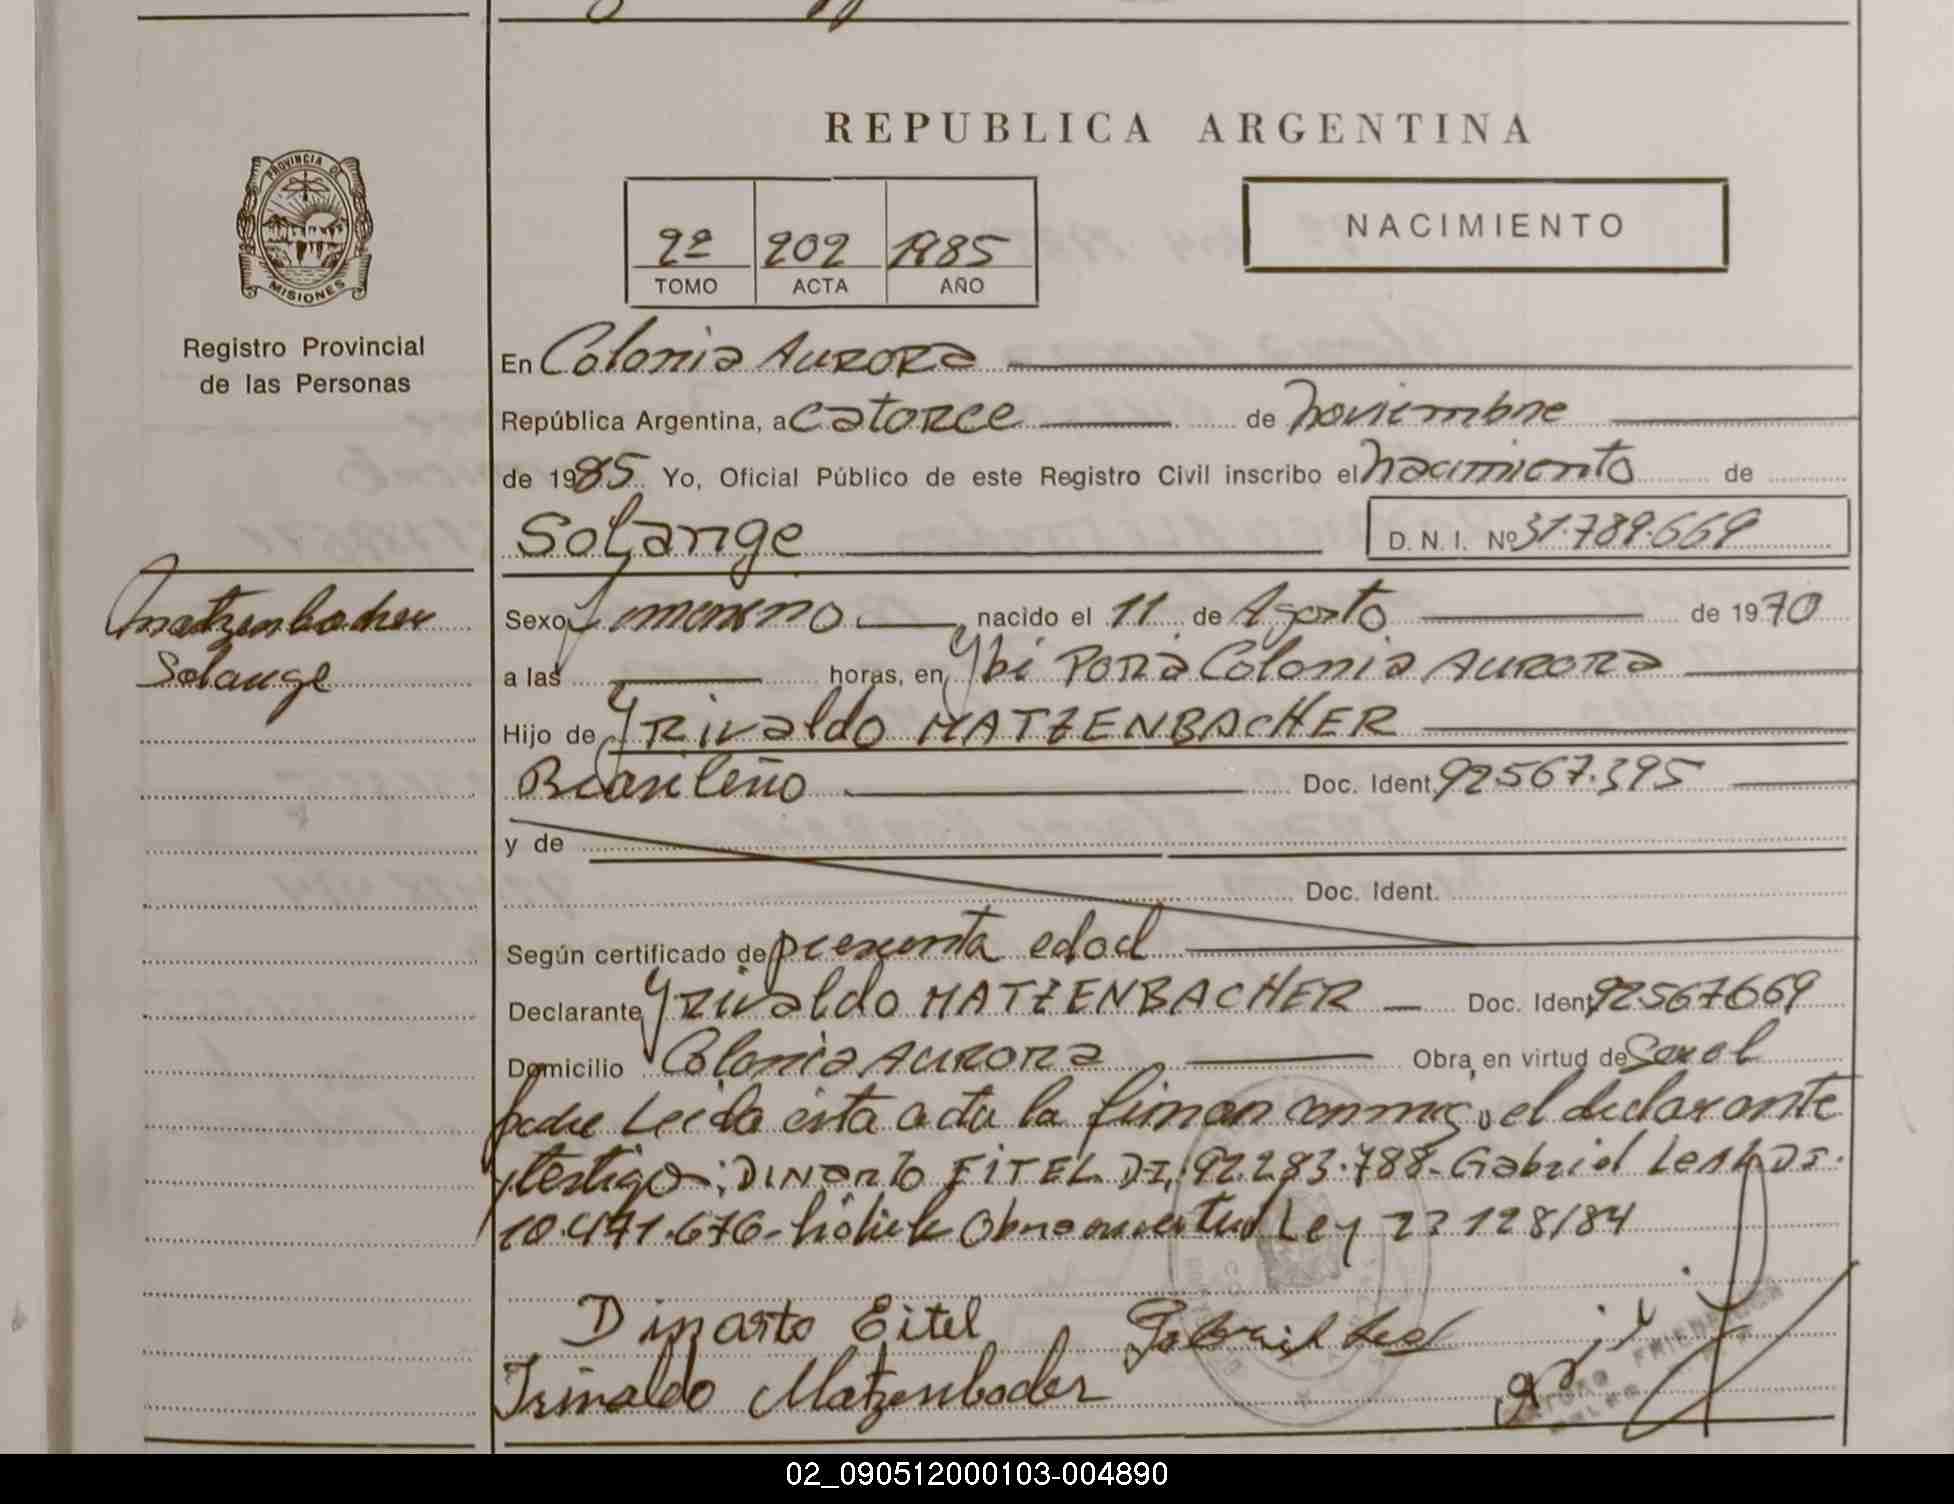 REPUBLICA ARGENTINA
PROVINCIA DE
MISIONES
Registro Provincial
de las Personas
2º 202 1985
TOMO ACTA AÑO
NACIMIENTO
En Colonia Aurora
República Argentina, a catorce de noviembre
de 1985 Yo, Oficial Público de este Registro Civil inscribo el nacimiento de
Solange D. N. I. Nº 31.789.669
Matzenbacher
Solange
Sexo femenino nacido el 11 de Agosto de 1970
a las horas, en Ybi Porá Colonia Aurora
Hijo de Yrivaldo MATZENBACHER
Brasileño Doc. Ident. 92567.395
y de
Doc. Ident.
Según certificado de presunta edad
Declarante Yrivaldo MATZENBACHER Doc. Ident. 92567669
Domicilio Colonia Aurora Obra en virtud de Ser el
padre Leida esta acta la firman conmigo el declarante
y testigo: DINARTO EITEL DI. 92.283.788- Gabriel DI.
10.441.676- Obra en virtud Ley 23128/84
Dinarto Eitel Gabriel
Irivaldo Matzenbacher
02_090512000103-004890